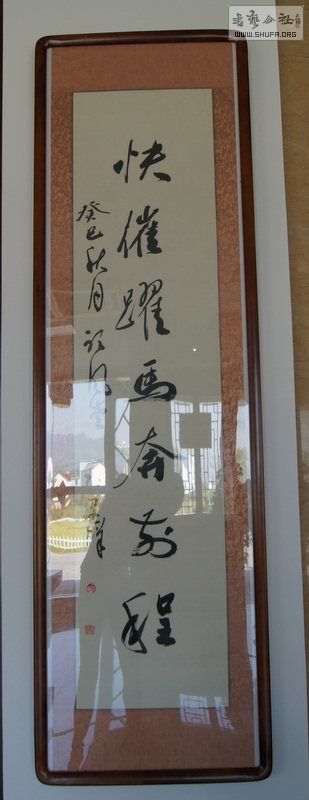 書藝公社
WWW.SHUFA.ORG
快催躍馬奔前程
癸巳秋月